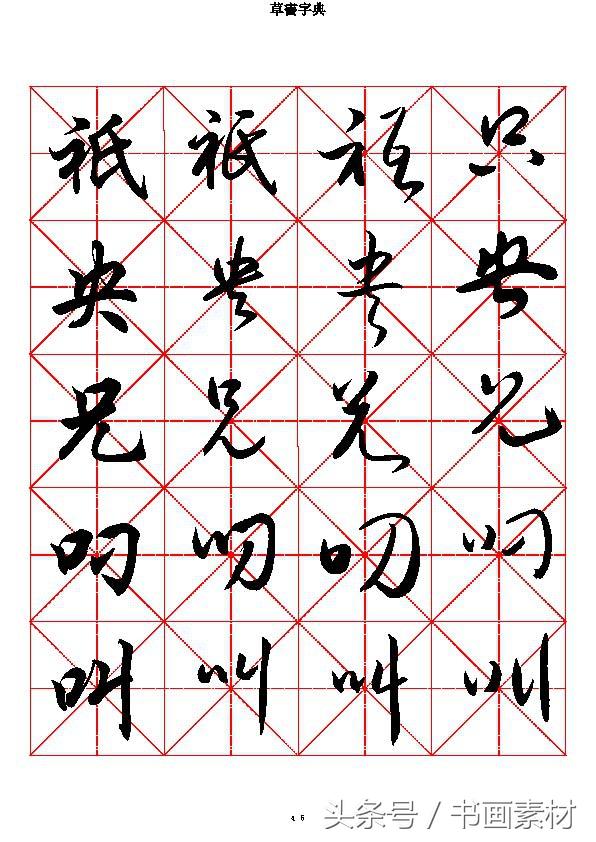 草書字典
祇 祇 祇 只
央 央 央 央
兄 兄 兄 兄
叼 叼 叼 叼
叫 叫 叫 叫
4 5
头条号 / 书画素材